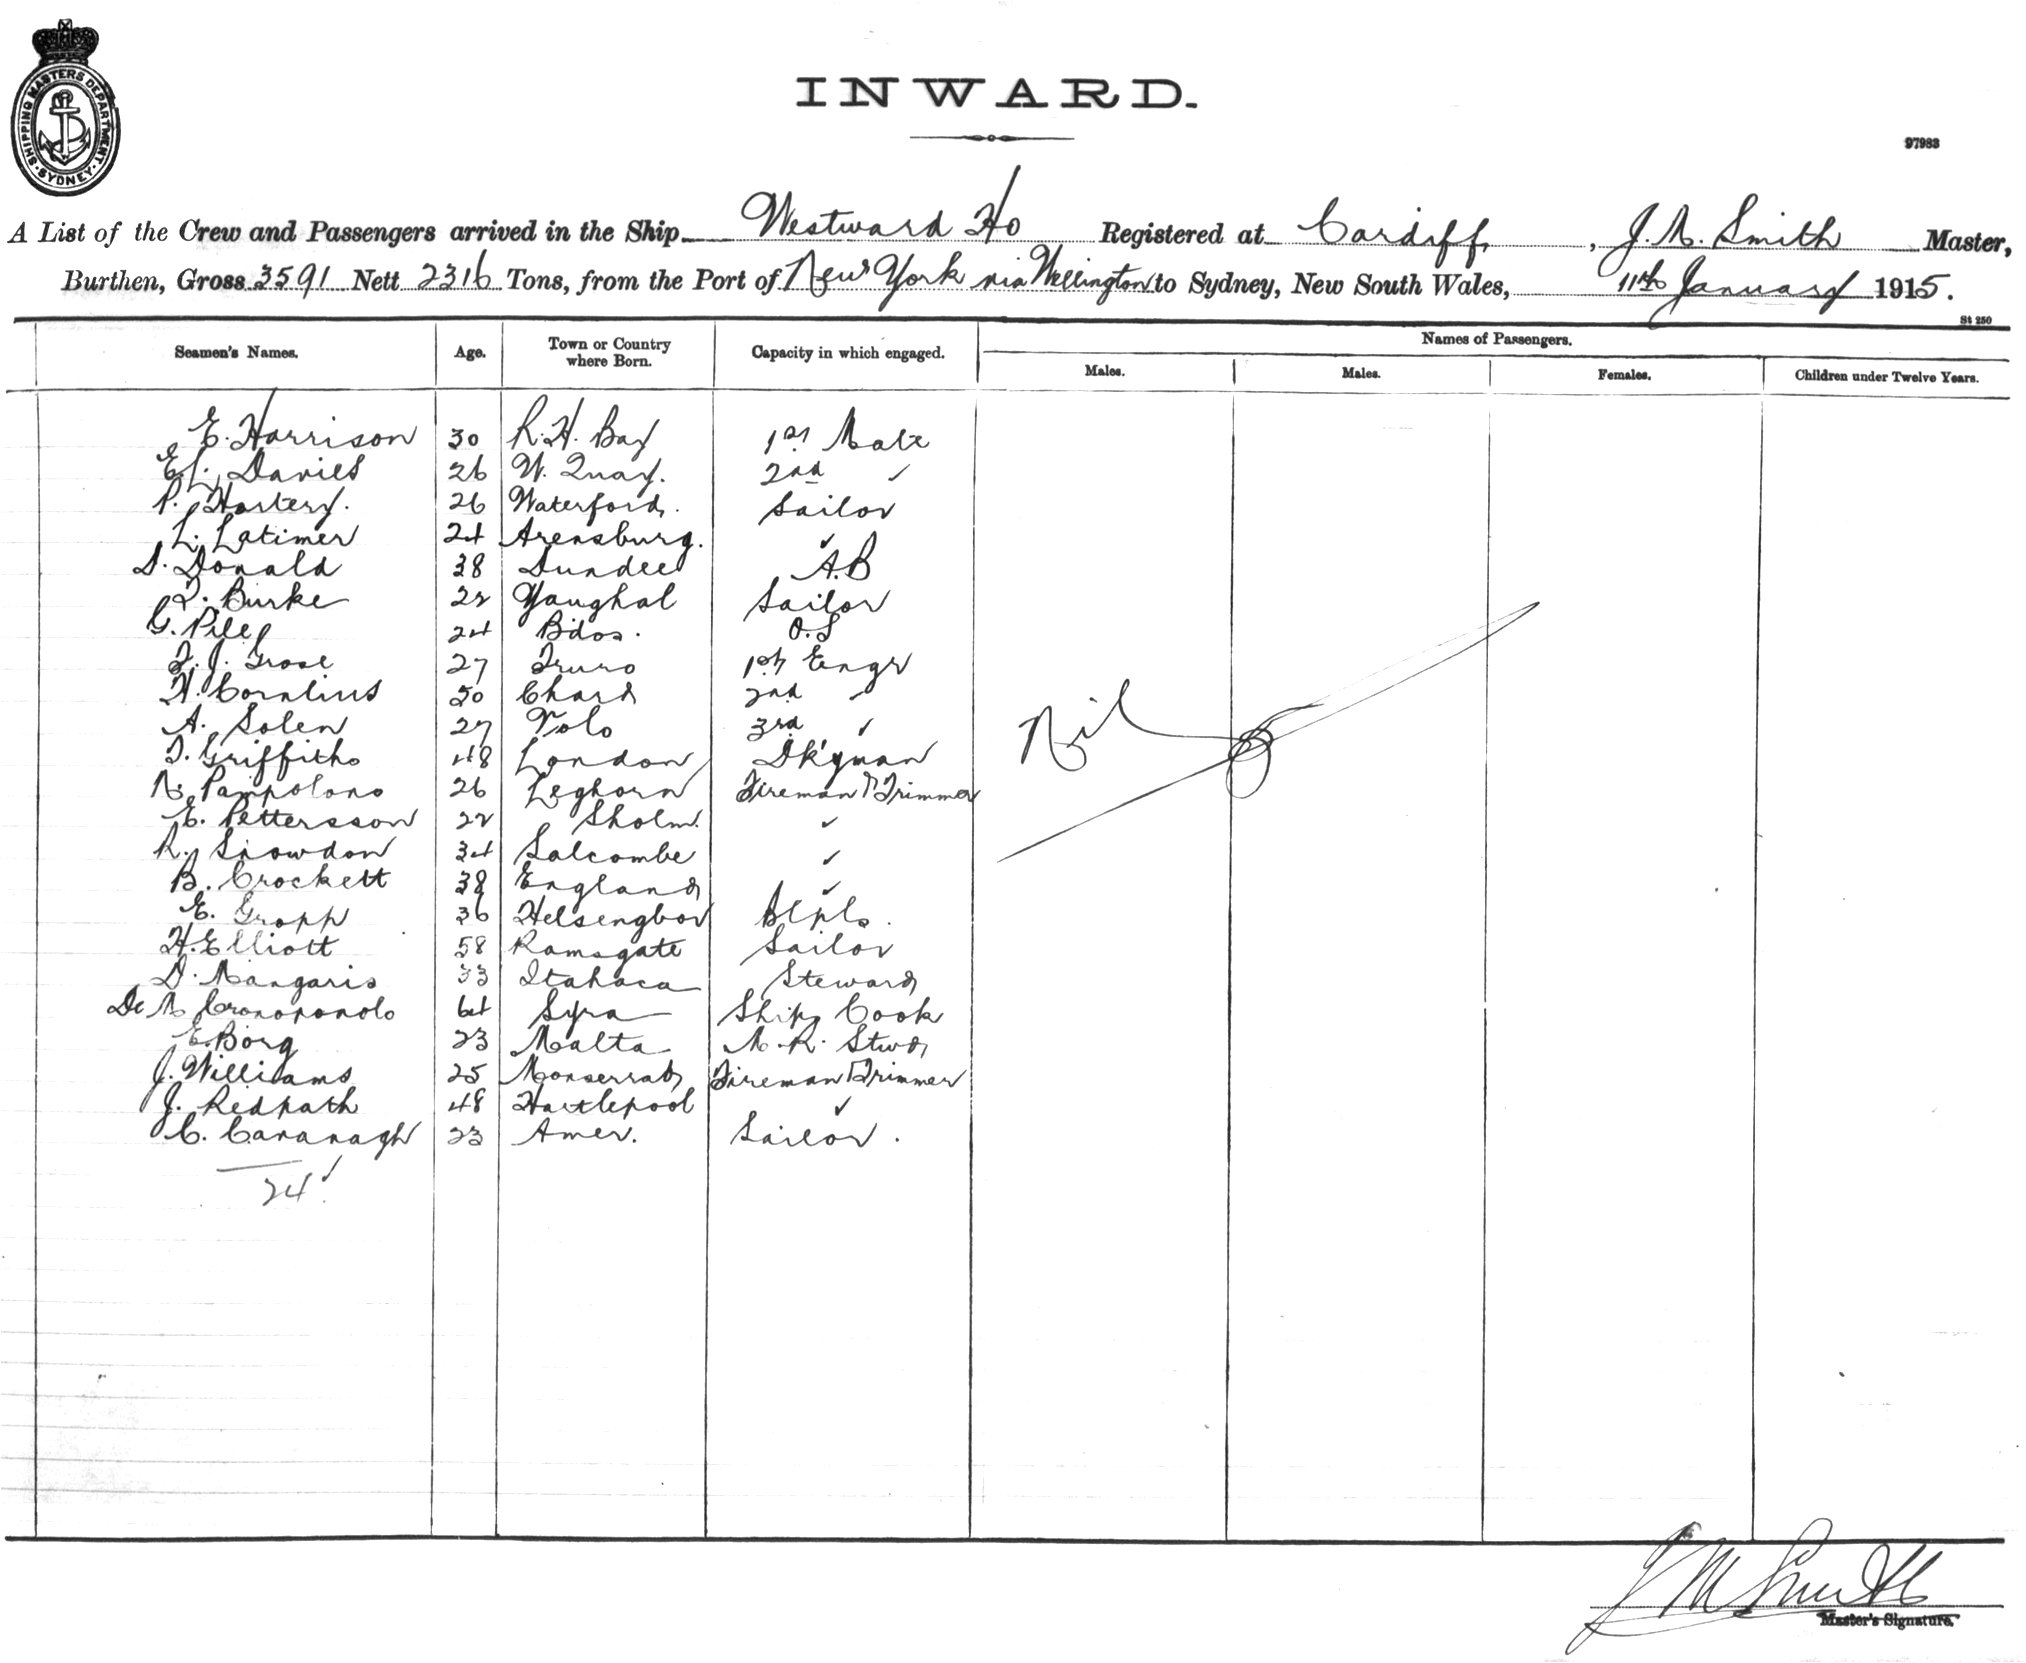 SHIPPING MASTERS DEPARTMENT. SYDNEY
INWARD.
97983
A List of the Crew and Passengers arrived in the Ship Westward Ho Registered at Cardiff, J. M. Smith Master,
Burthen, Gross 3591 Nett 2316 Tons, from the Port of New York via Wellington to Sydney, New South Wales, 11th January 1915.
St 250
Seamen's Names. Age. Town or Country where Born. Capacity in which engaged. Names of Passengers.
Males. Males. Females. Children under Twelve Years.
E. Harrison 30 R. H. Bay 1st Mate
E L. Davies 26 N. Quay. 2nd "
P. Hartery. 26 Waterford. Sailor
L. Latimer 24 Arensburg. "
D. Donald 38 Dundee A.B
T. Burke 22 Youghal Sailor
G. Pile 24 Bdos. O.S
T. J. Grose 27 Truro 1st Engr
H. Cornlius 50 Chard 2nd "
A. Solen 27 Volo 3rd "
T. Griffiths 48 London Dkyman
N. Pampolono 26 Leghorn Fireman & Trimmer
E. Pettersson 22 Sholm. "
R. Snowdon 34 Salcombe "
B. Crockett 38 England "
E. Gropp 36 Helsengbor
H. Elliott 58 Ramsgate Sailor
D. Mangaris 33 Itahaca Steward
De M Cronoponolo 64 Syra Ships Cook
E. Borg 23 Malta M. R. Stwd
J. Williams 25 Monserrat Fireman & Trimmer
J. Redpath 48 Hartlepool "
C. Cavanagh 23 Amer. Sailor.
24
Nil
J M Smith
Master's Signature.